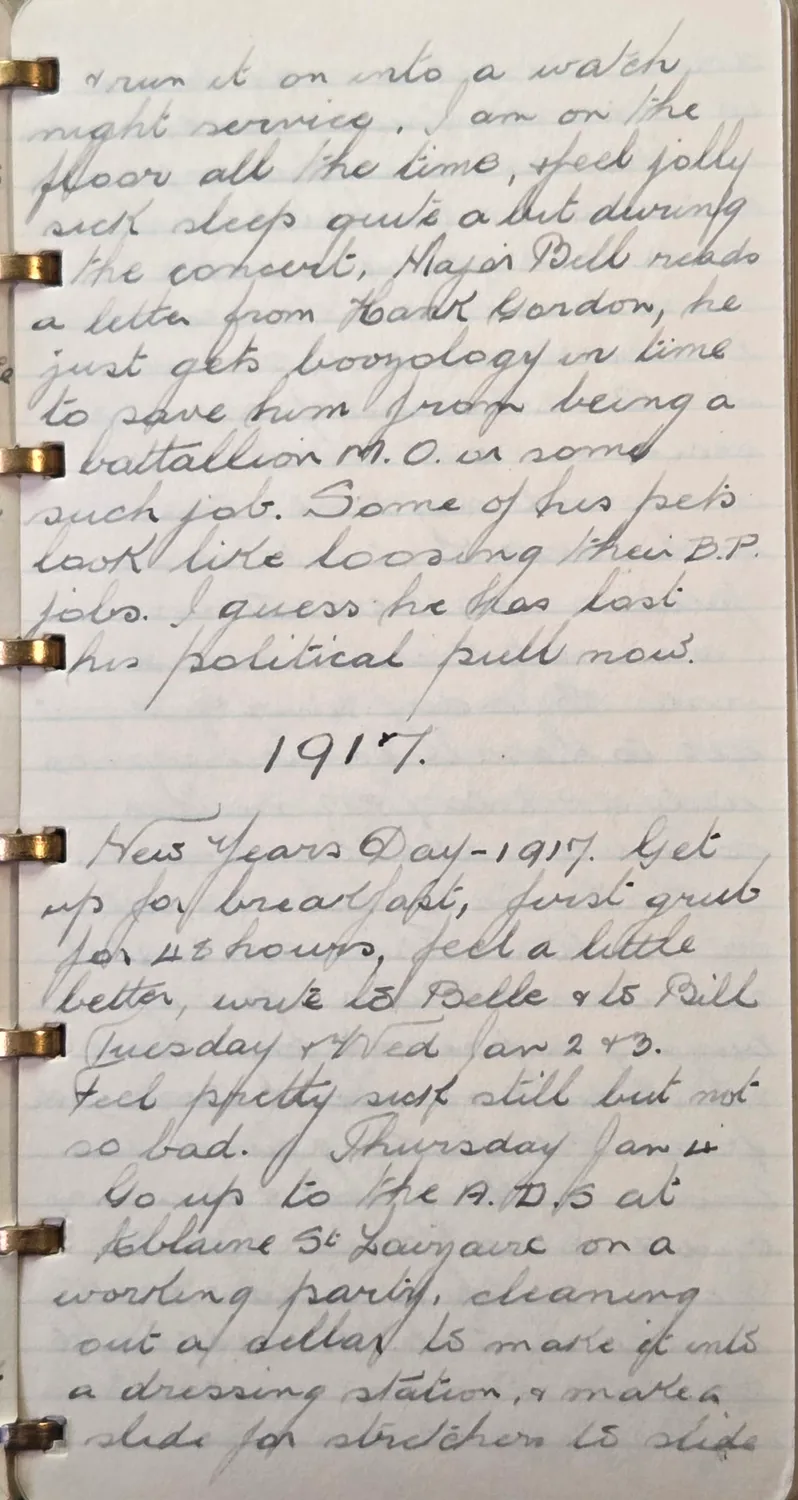 & run it on into a watch
night service. I am on the
floor all the time, & feel jolly
sick sleep quite a bit during
the concert, Major Bell reads
a letter from Hank Gordon, he
just gets boozology in time
to save him from being a
battallion M.O. or some
such job. Some of his pets
look like loosing their B.P.
jobs. I guess he has lost
his political pull now.
1917.
New Years Day - 1917. Get
up for breakfast, first grub
for 48 hours, feel a little
better, write to Belle & to Bill
Tuesday & Wed Jan 2 & 3.
Feel pretty sick still but not
so bad. Thursday Jan 4
Go up to the A.D.S at
Ablaine St Lazaire on a
working party, cleaning
out a cellar to make it into
a dressing station, & make a
slide for stretchers to slide